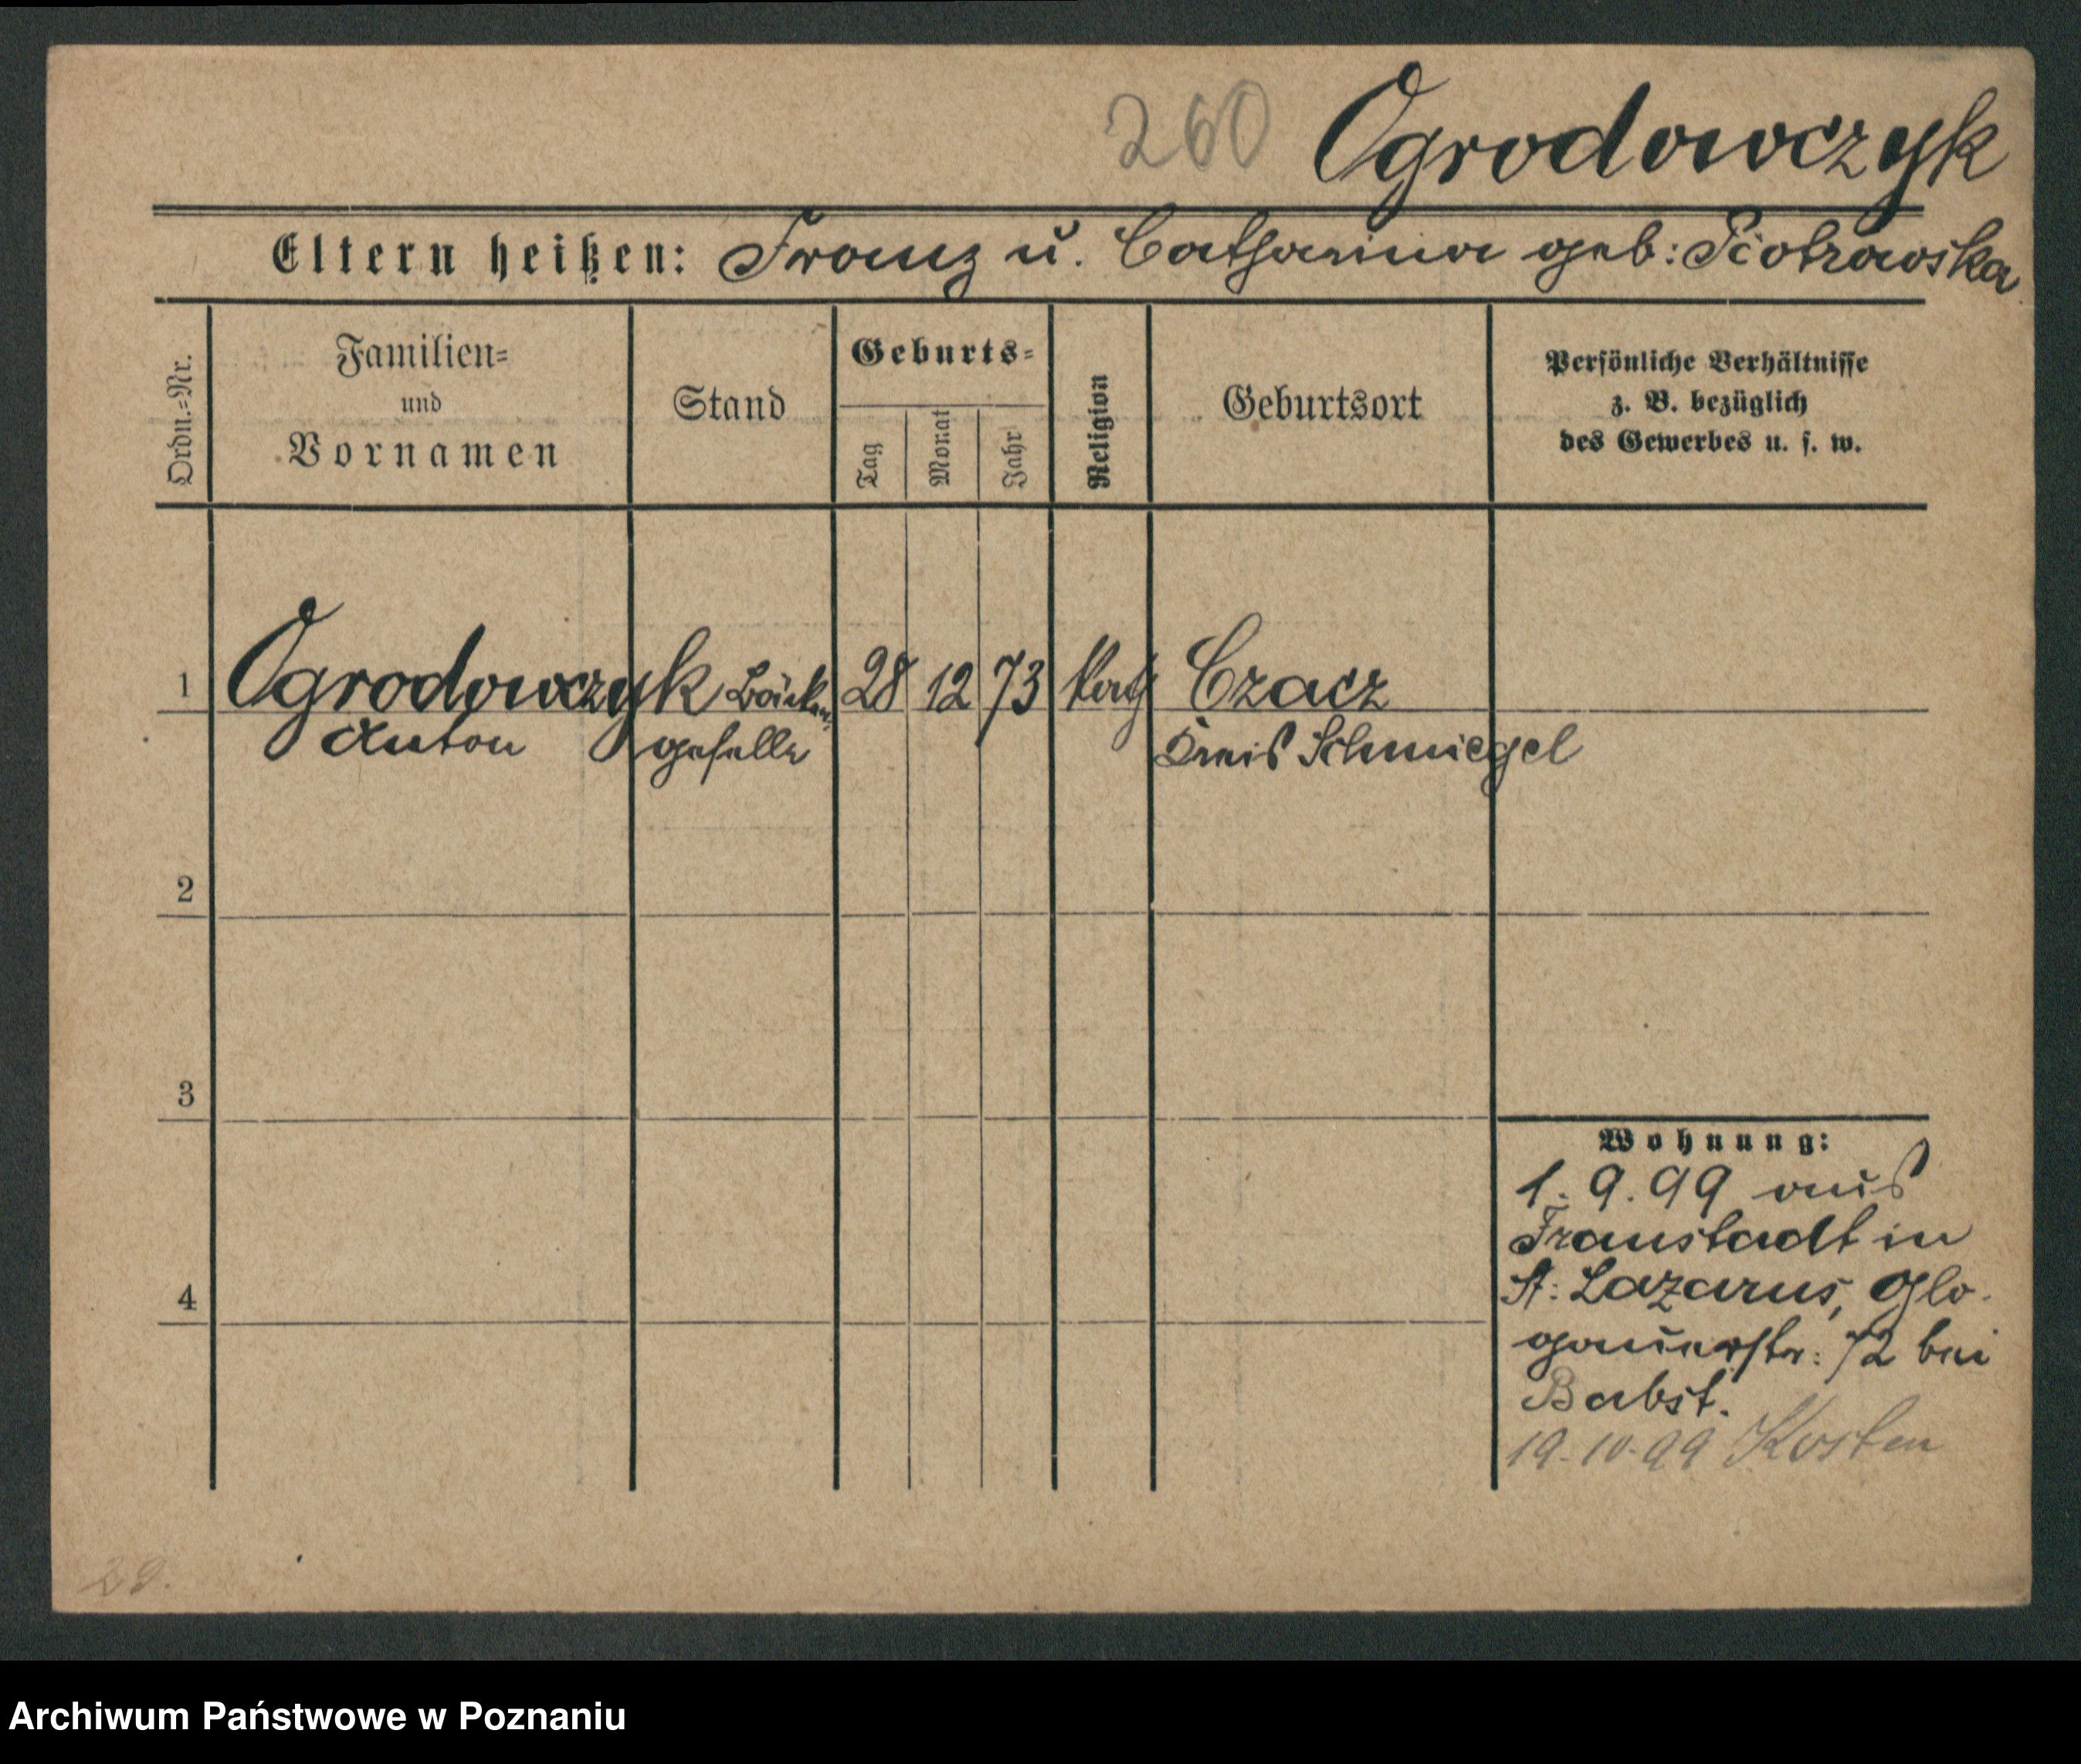 260 Ogrodowczyk
Eltern heißen: Franz u. Catharina geb: Piotrowska
Ordn.=Nr.
Familien=
und
Vornamen
Stand
Geburts=
Tag
Monat
Jahr
Religion
Geburtsort
Persönliche Verhältnisse
z. B. bezüglich
des Gewerbes u. s. w.
1 Ogrodowczyk Bäcker- 28 12 73 kath Czacz
Anton geselle Kreis Schmiegel
2
3
4
Wohnung:
1. 9. 99 aus
Fraustadt in
St. Lazarus, Glo-
gauerstr: 72 bei
Babst.
19-10-99 Kosten
Archiwum Państwowe w Poznaniu